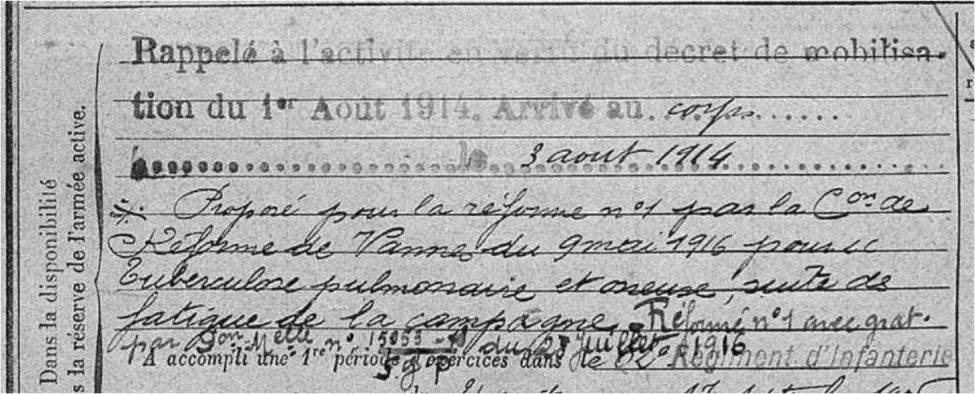 Dans la disponibilité
s la réserve de l'armée active.
Rappelé à l'activité en vertu du décret de mobilisa-
tion du 1er Août 1914. Arrivé au corps
le 3 aout 1914
Proposé pour la réforme n°1 par la Con de
Réforme de Vannes du 9 mai 1916 pour "
Tuberculose pulmonaire et osseuse, suite de
fatigue de la campagne. Réformé n°1 avec grat.
par Don Melle n° 15055 du 27 Juillet 1916
A accompli une 1re période d'exercices dans le 62e Régiment d'Infanterie